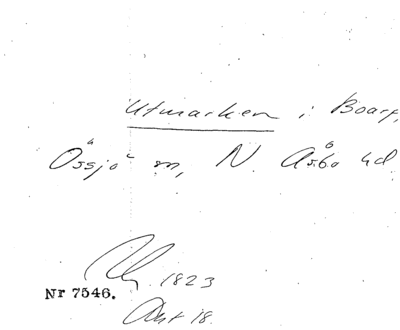 Utmarken i Boarp,
Össjö sn, N. Åsbo hd
1823
Nr 7546.
Akt 18.